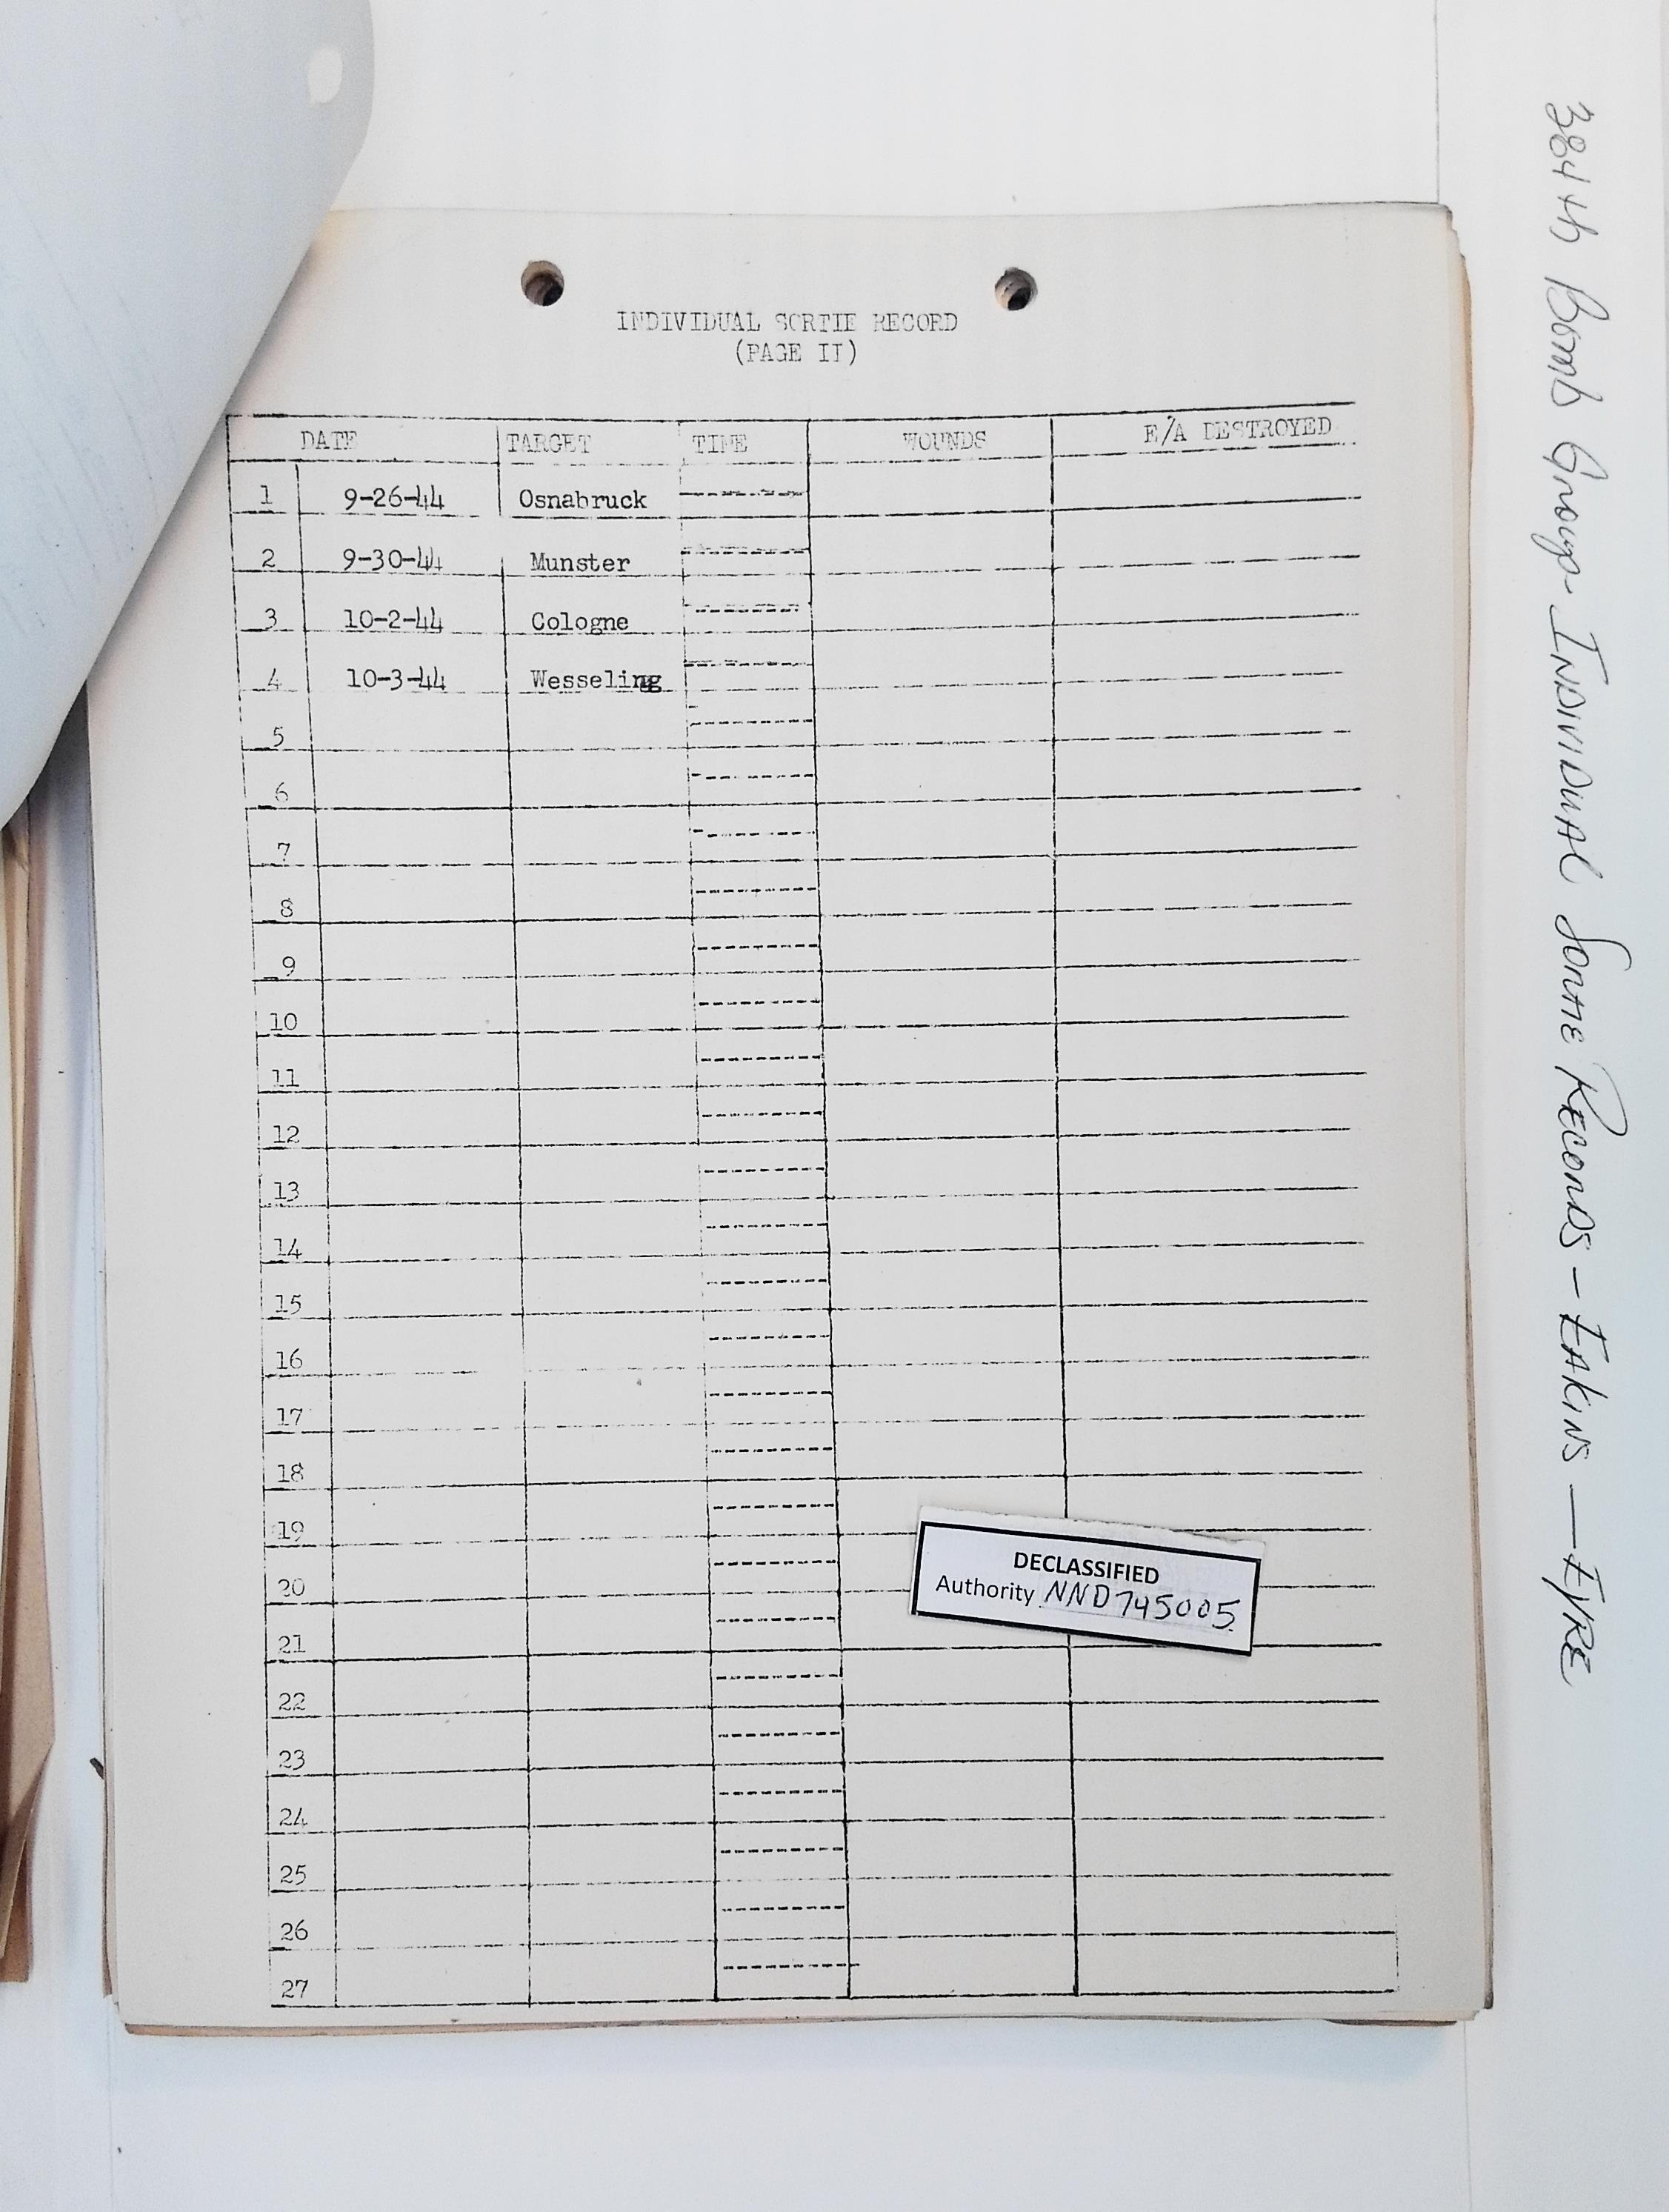 INDIVIDUAL SORTIE RECORD
(PAGE II)
DATE TARGET TIME WOUNDS E/A DESTROYED
1 9-26-44 Osnabruck
2 9-30-44 Munster
3 10-2-44 Cologne
4 10-3-44 Wesseling
5
6
7
8
9
10
11
12
13
14
15
16
17
18
19
20
21
22
23
24
25
26
27
DECLASSIFIED
Authority NND745005
384th Bomb Group - INDIVIDUAL SORTIE RECORDS - EAKINS — EYRE